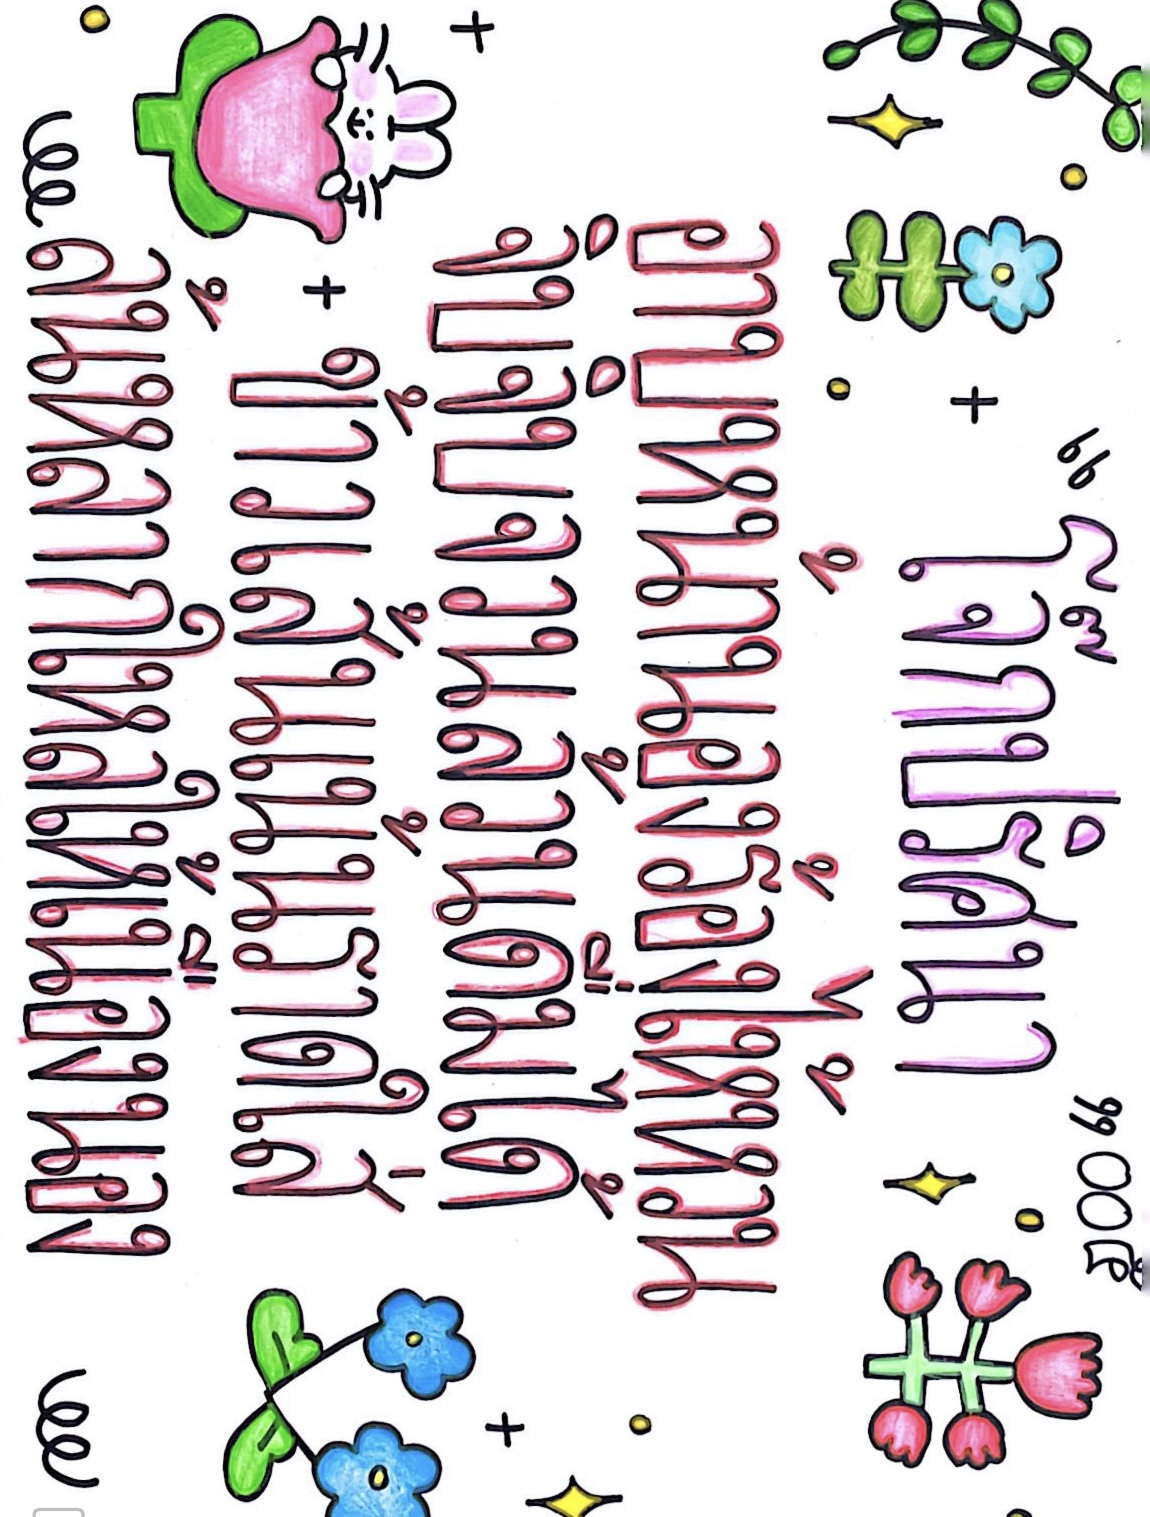 “โจ๊กปริศนา” ๐๐๕
อาบหน้านองร้องไห้หวน
จิบจิบจวนล้วนดื่มได้
ข้าวเส้นเน้นราดใส่
ล้นหลากใหลให้เนืองนอง